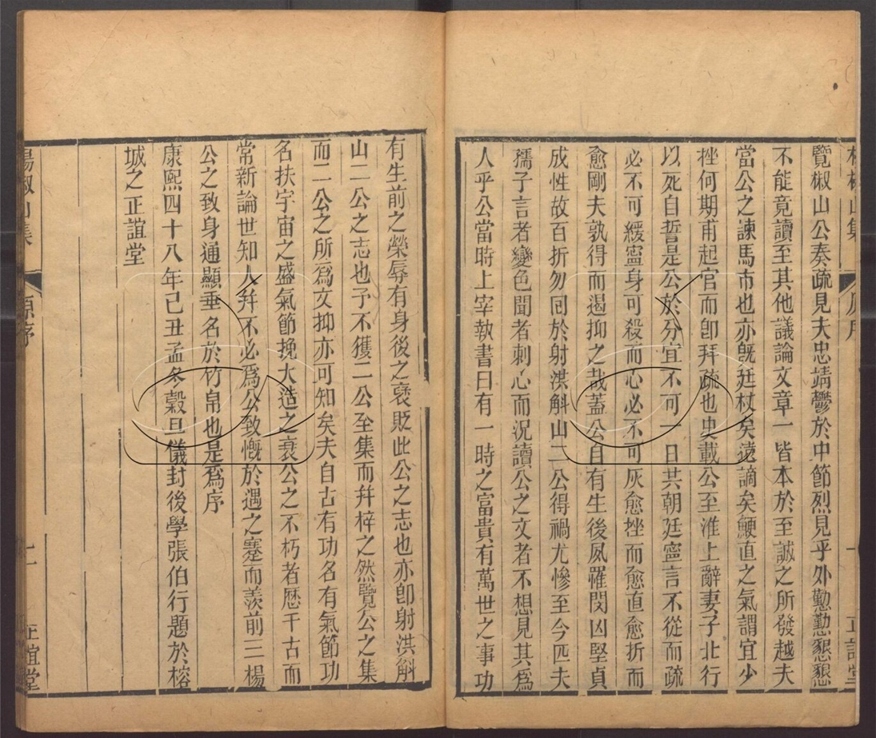 覽椒山公奏疏見夫忠靖鬱於中節烈見乎外懃懃懇懇
不能竟讀至其他議論文章一皆本於至誠之所發越夫
當公之諫馬市也亦旣廷杖矣遠謫矣鯁直之氣謂宜少
挫何期甫起官而卽拜疏也史載公至淮上辭妻子北行
以死自誓是公於分宜不可一日共朝廷寧言不從而疏
必不可緩寧身可殺而心必不可灰愈挫而愈直愈折而
愈剛夫孰得而遏抑之哉蓋公自有生後夙罹閔凶堅貞
成性故百折勿回於射洪斛山二公得禍尤慘至今匹夫
孺子言者變色聞者刺心而況讀公之文者不想見其爲
人乎公當時上宰執書曰有一時之富貴有萬世之事功
有生前之榮辱有身後之褒貶此公之志也亦卽射洪斛
山二公之志也予不獲二公至集而幷梓之然覽公之集
而二公之所爲文抑亦可知矣夫自古有功名有氣節功
名扶宇宙之盛氣節挽大造之衰公之不朽者歷千古而
常新論世知人幷不必爲公致慨於遇之蹇而羨前三楊
公之致身通顯垂名於竹帛也是爲序
康熙四十八年己丑孟冬穀旦儀封後學張伯行題於榕
城之正誼堂
楊椒山集
原序
二
正誼堂